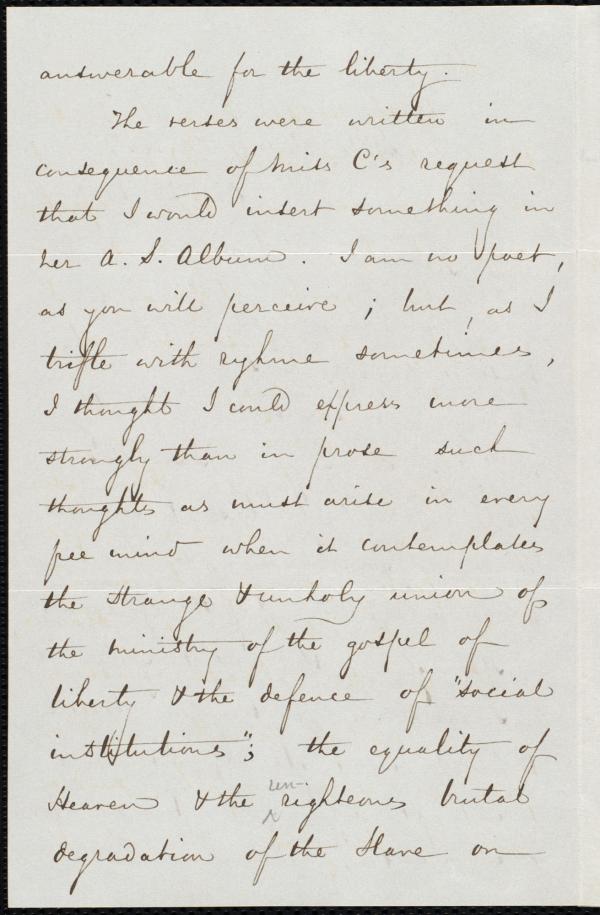 answerable for the liberty.
The verses were written in
consequence of Miss C's request
that I would insert something in
her A. S. Album. I am no poet,
as you will perceive; but, as I
trifle with ryhme sometimes,
I thought I could express more
strongly than in prose such
thoughts as must arise in every
free mind when it contemplates
the strange & unholy union of
the ministry of the gospel of
liberty & the defence of "social
institutions"; the equality of
Heaven & the un-righteous brutal
degradation of the Slave on